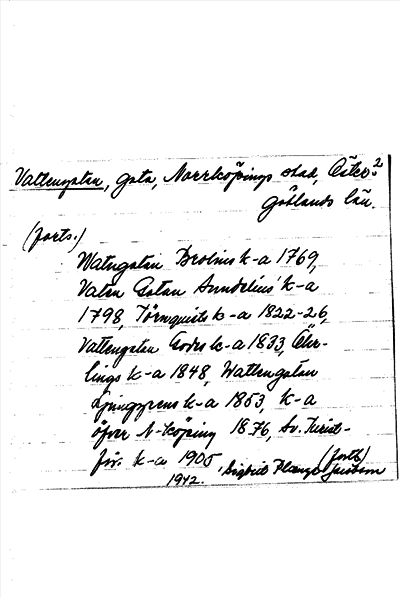 Vattengatan, gata, Norrköpings stad, Öster- 2
götlands län.
(forts.)
Watugatan Brolins k-a 1769,
Vaten Gatan Sundelius' k-a
1798, Törnquists k-a 1822-26,
Vattengatan Codes k-a 1833, Öhr-
lings k-a 1848, Wattengatan
Ljunggrens k-a 1853, k-a
öfver N-köping 1876, Sv. Turist-
för. k-a 1905,
(forts)
1942. Sigbrit Plange Jansson